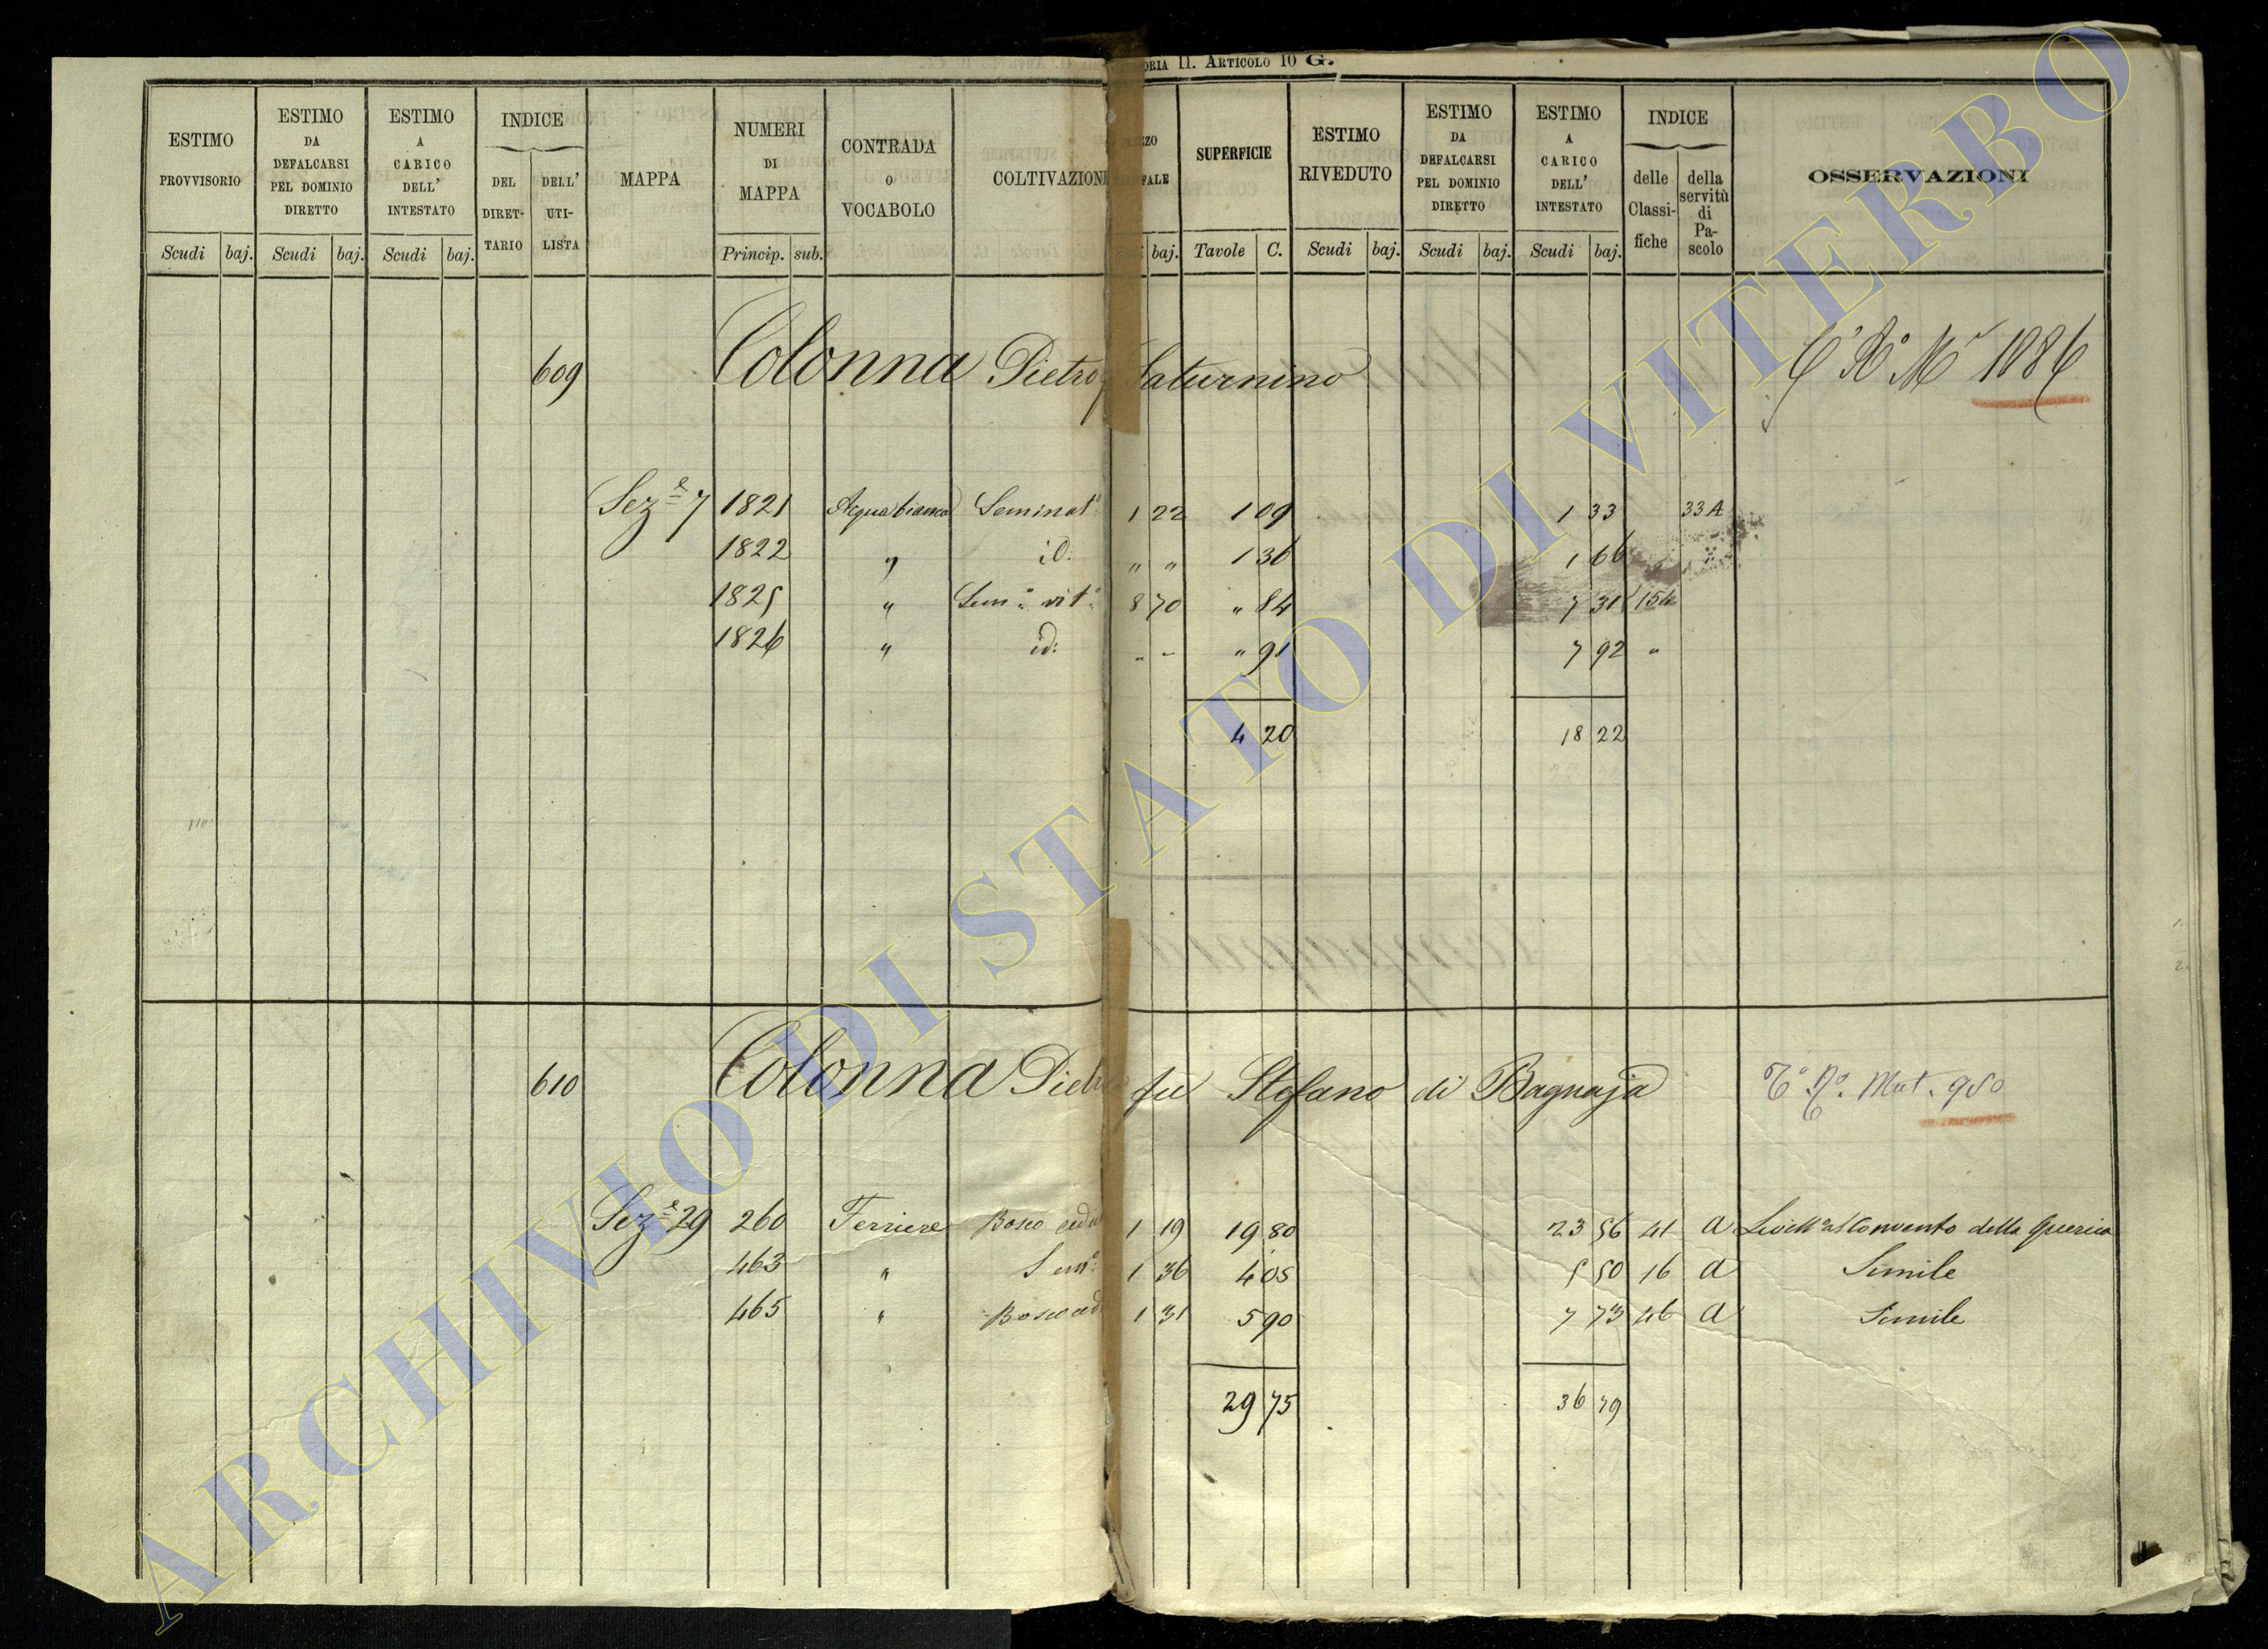 ORIA II. ARTICOLO 10 G.
ESTIMO PROVVISORIO | ESTIMO DA DEFALCARSI PEL DOMINIO DIRETTO | ESTIMO A CARICO DELL' INTESTATO | INDICE DEL DIRETTARIO | DELL' UTILISTA | MAPPA | NUMERI DI MAPPA | CONTRADA O VOCABOLO | COLTIVAZION | SUPERFICIE | ESTIMO RIVEDUTO | ESTIMO DA DEFALCARSI PEL DOMINIO DIRETTO | ESTIMO A CARICO DELL' INTESTATO | INDICE delle Classifiche | della servitù di Pascolo | OSSERVAZIONI
Scudi baj. Scudi baj. Scudi baj. Princip. sub. baj. Tavole C. Scudi baj. Scudi baj. Scudi baj.
609 Colonna Pietro Saturnino 1886
Sez.e 7 1821 Acquabianca Seminat.o 1 22 1 09 1 33 33 A
1822 " id: " " 1 36 1 66 "
1825 " Sem.o vit.o 8 70 " 84 7 31 154
1826 " id: " " " 91 7 92 "
4 20 18 22
610 Colonna Pietro fu Stefano di Bagnaja Mut. 950
Sez.e 29 260 Ferriere Bosco ced 1 19 19 80 23 56 41 a Livell.o al Convento della Quercia
463 " Sem.o 1 36 4 05 5 50 16 a Simile
465 " Bosco ced 1 31 5 90 7 73 46 a Simile
29 75 36 79
ARCHIVIO DI STATO DI VITERBO